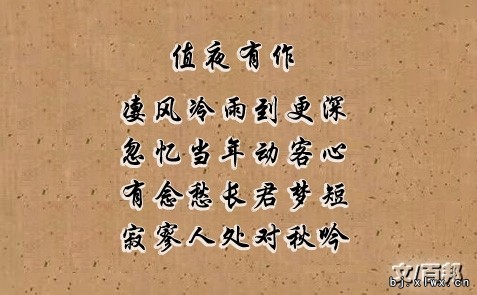 值夜有作
凄风冷雨到更深
忽忆当年动客心
有念愁长君梦短
寂寥人处对秋吟
文百邦
bj.xlwx.cn